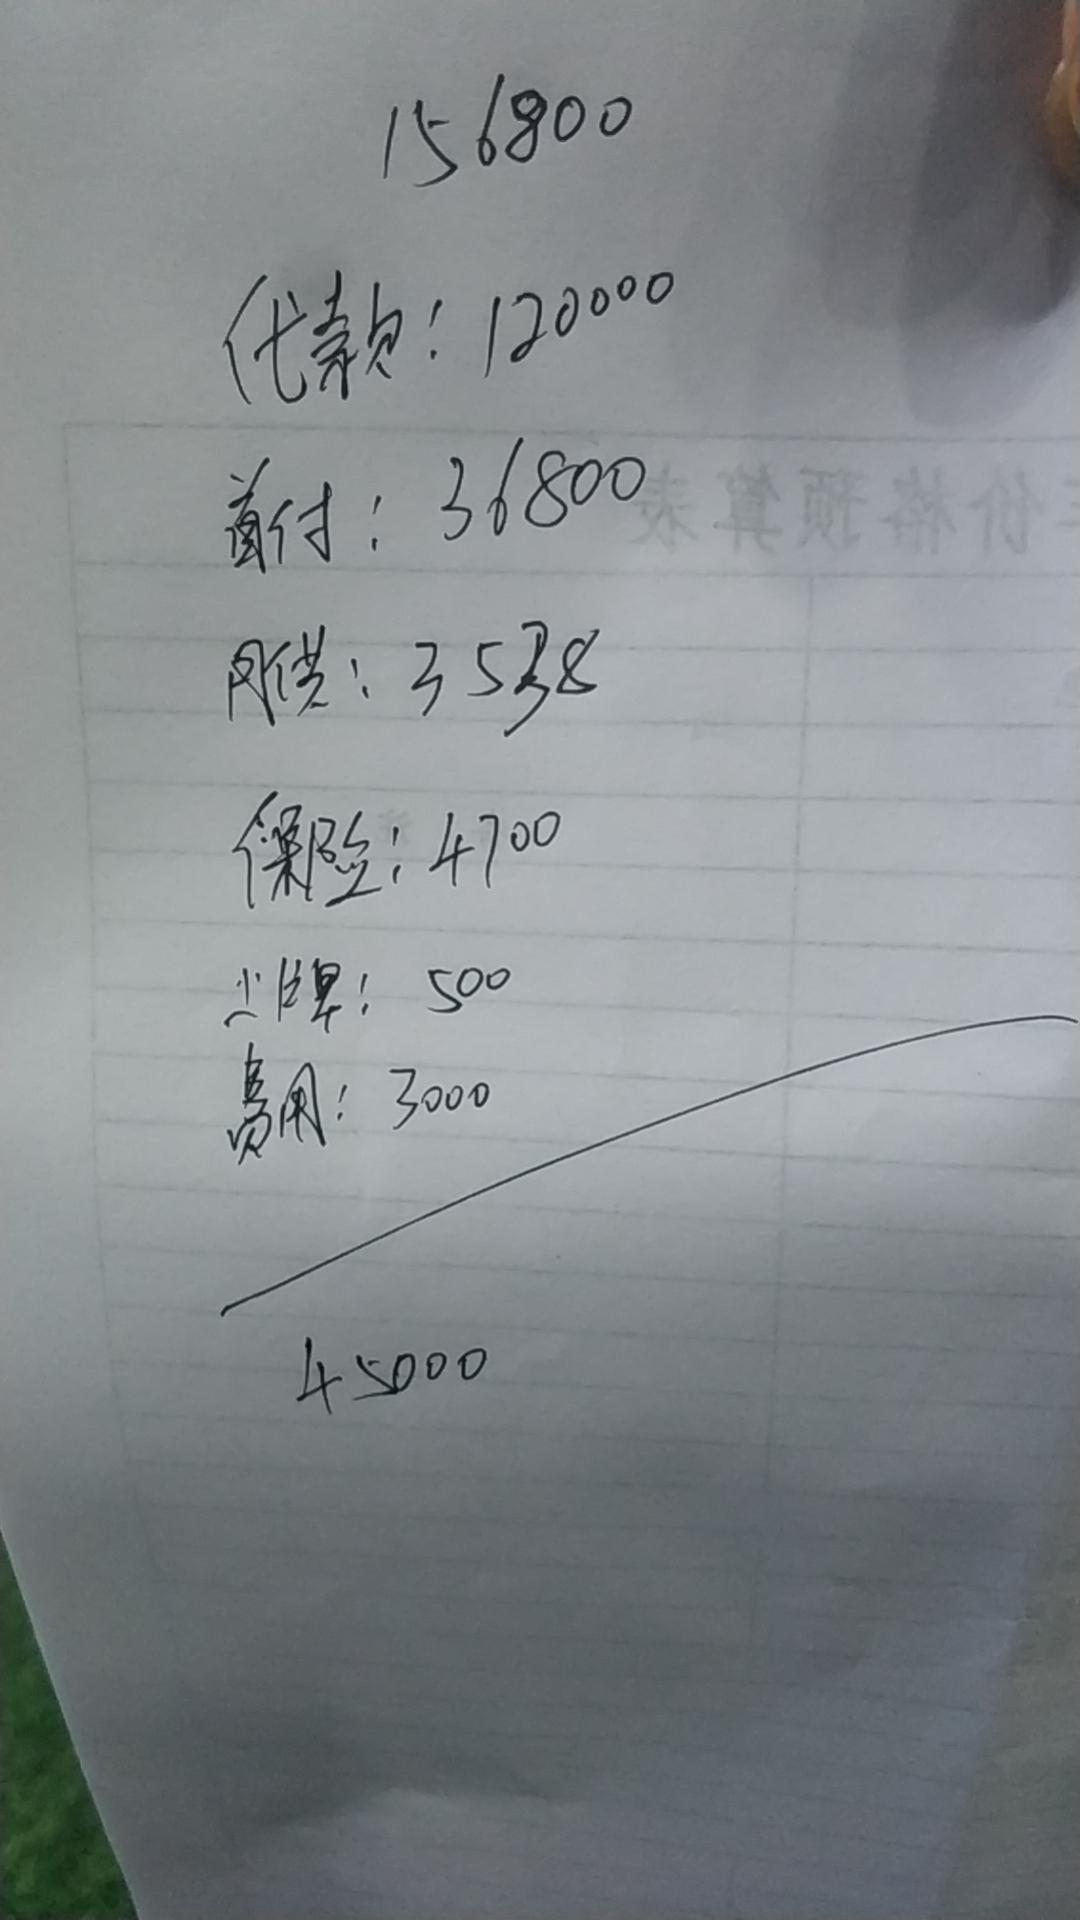 156800
代款：120000
首付：36800
月供：3538
保险：4700
上牌：500
费用：3000
45000
车价格预算表